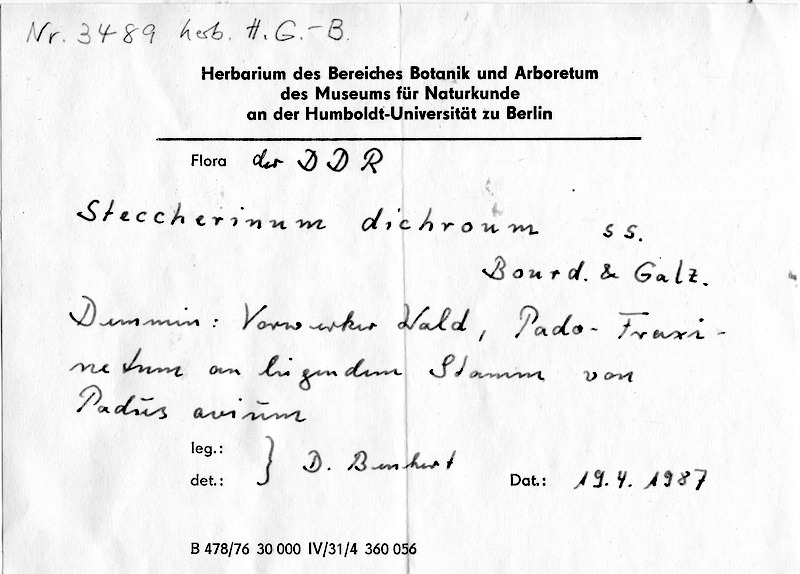 Nr. 3489 herb. H.G.-B.
Herbarium des Bereiches Botanik und Arboretum
des Museums für Naturkunde
an der Humboldt-Universität zu Berlin
Flora der DDR
Steccherinum dichroum ss.
Bourd. & Galz.
Demmin: Vorwerker Wald, Pado-Fraxi-
netum an liegendem Stamm von
Padus avium
leg.:
det.: } D. Benkert Dat.: 19.4.1987
B 478/76 30 000 IV/31/4 360 056